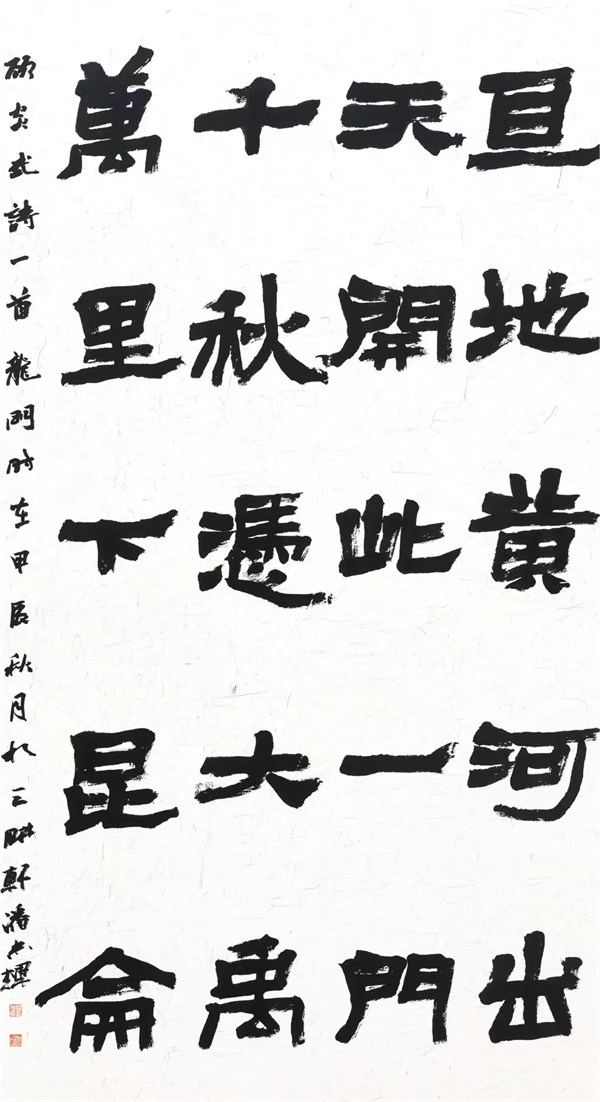 亘地黃河出
天開此一門
千秋憑大禹
萬里下昆侖
顧炎武詩一首龍門時在甲辰秋月於三耕軒潘